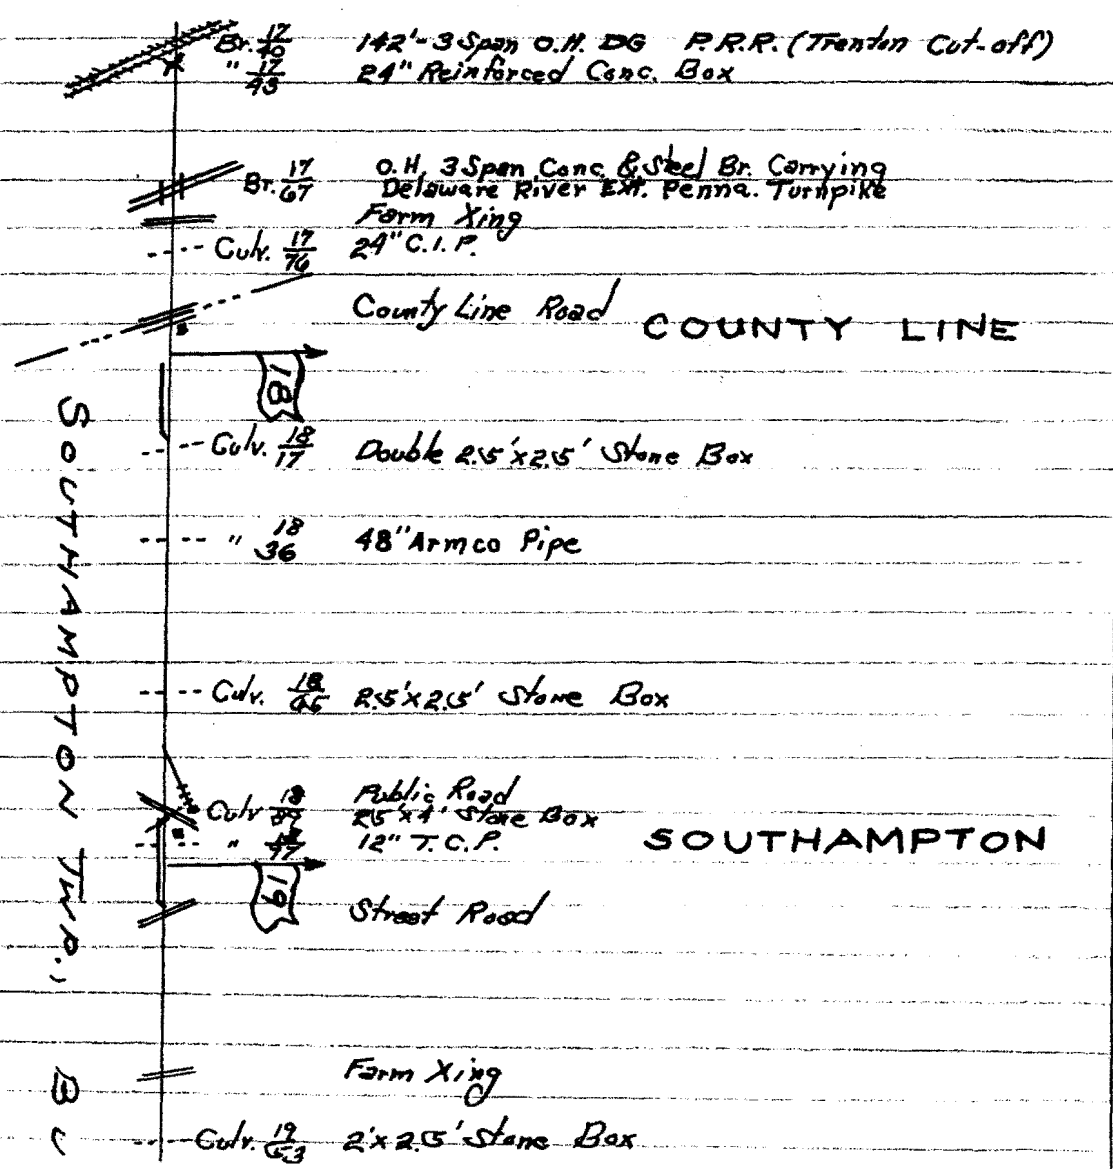 Br. 17/40 142'-3 Span O.H. DG P.R.R. (Trenton Cut-off)
" 17/43 24" Reinforced Conc. Box
Br. 17/67 O.H. 3 Span Conc. & Steel Br. Carrying
Delaware River Ext. Penna. Turnpike
Farm Xing
Culv. 17/76 24" C.I.P.
County Line Road COUNTY LINE
18
Culv. 18/17 Double 2.5'x2.5' Stone Box
" 18/36 48" Armco Pipe
Culv. 18/65 2.5'x2.5' Stone Box
Public Road
Culv 18/89 2.5'x4' Stone Box
" 12" T.C.P. SOUTHAMPTON
19
Street Road
Farm Xing
Culv. 19/53 2'x2.5' Stone Box
SOUTHAMPTON TWP., BU